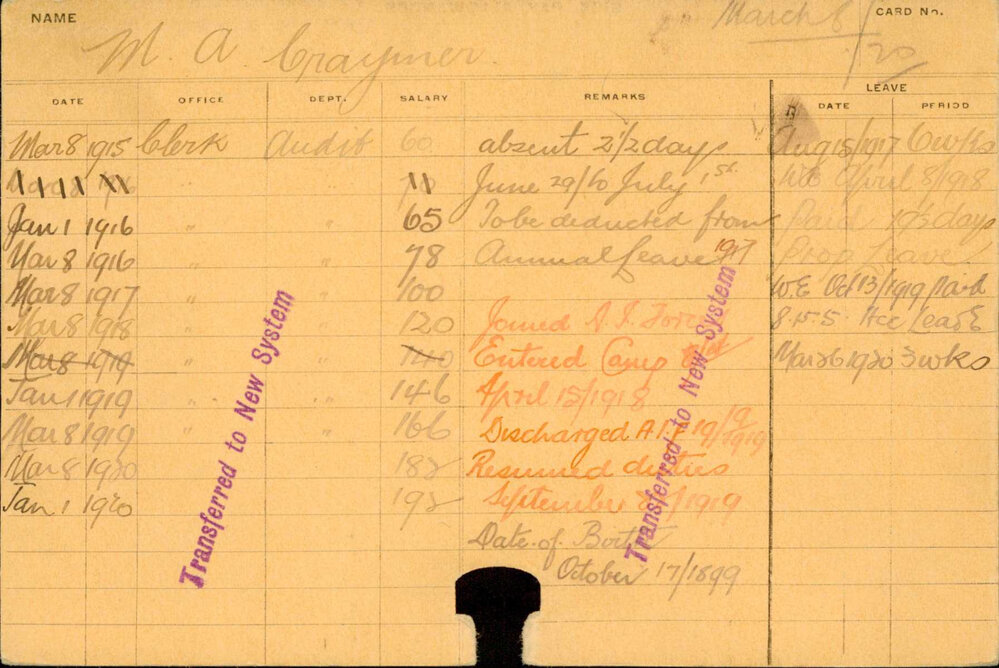 NAME
M. A. Craymer.
March 8/20
CARD No.
DATE OFFICE DEPT. SALARY REMARKS LEAVE
DATE PERIOD
Mar 8 1915 Clerk Audit 60 absent 2 1/2 days Aug 15/1917 6 wks
June 29/to July 1st. April 8/1918
Jan 1 1916 " " 65 To be deducted from Paid days
Mar 8 1916 " " 78 Annual leave 1917 Prop Leave
Mar 8 1917 " " 100 W.E. Oct 13/1919 Paid
Mar 8 1918 " " 120 Joined A.I. Force 8.15.5 Acc Leave
Mar 8 1919 " " 140 Entered Camp Mar 26 1920 3 wks
Jan 1 1919 " " 146 April 15/1918
Mar 8 1919 " " 166 Discharged A.I.F 19/9/1919
Mar 8 1920 182 Resumed duties
Jan 1 1920 192 September /1919
Date of Birth
October 17/1899
Transferred to New System
Transferred to New System